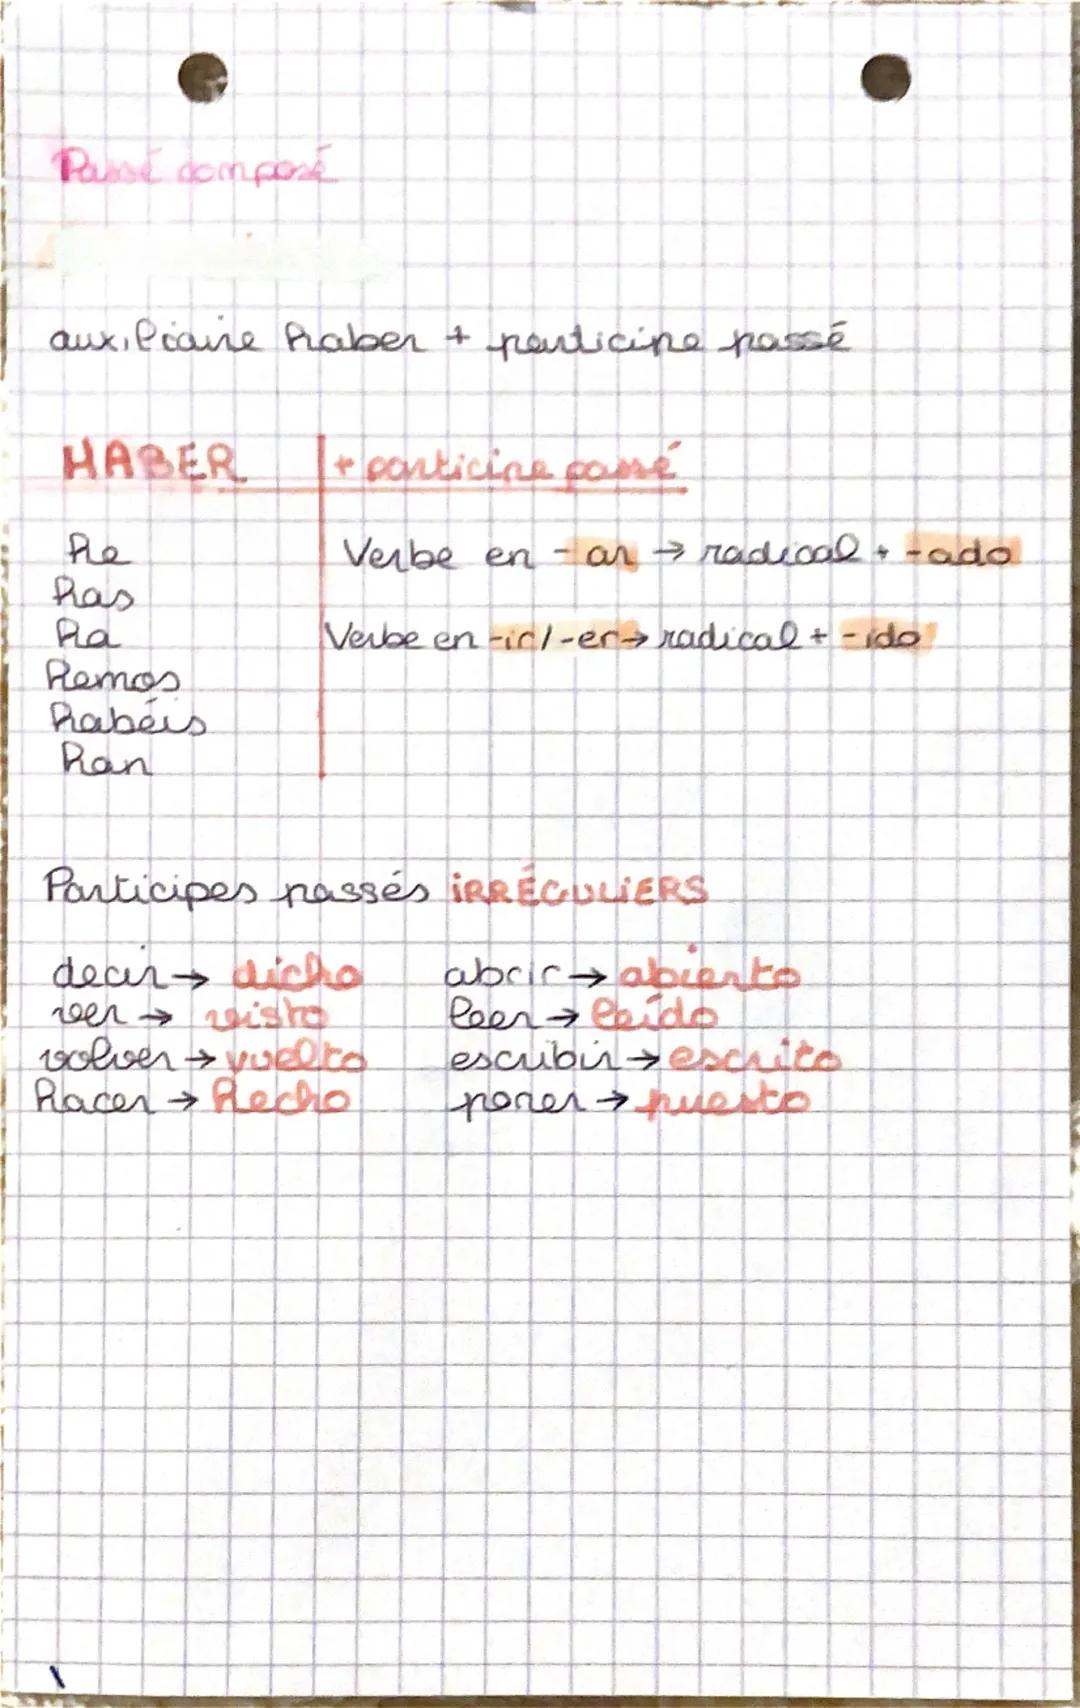 Passé composé
auxiliaire haber + participe passé
HABER + participe passé
he Verbe en -ar → radical + -ado
has
ha Verbe en -ir/-er → radical + -ido
hemos
habéis
han
Participes passés IRRÉGULIERS
decir → dicho abrir → abierto
ver → visto leer → leído
volver → vuelto escubir → escrito
hacer → hecho poner → puesto